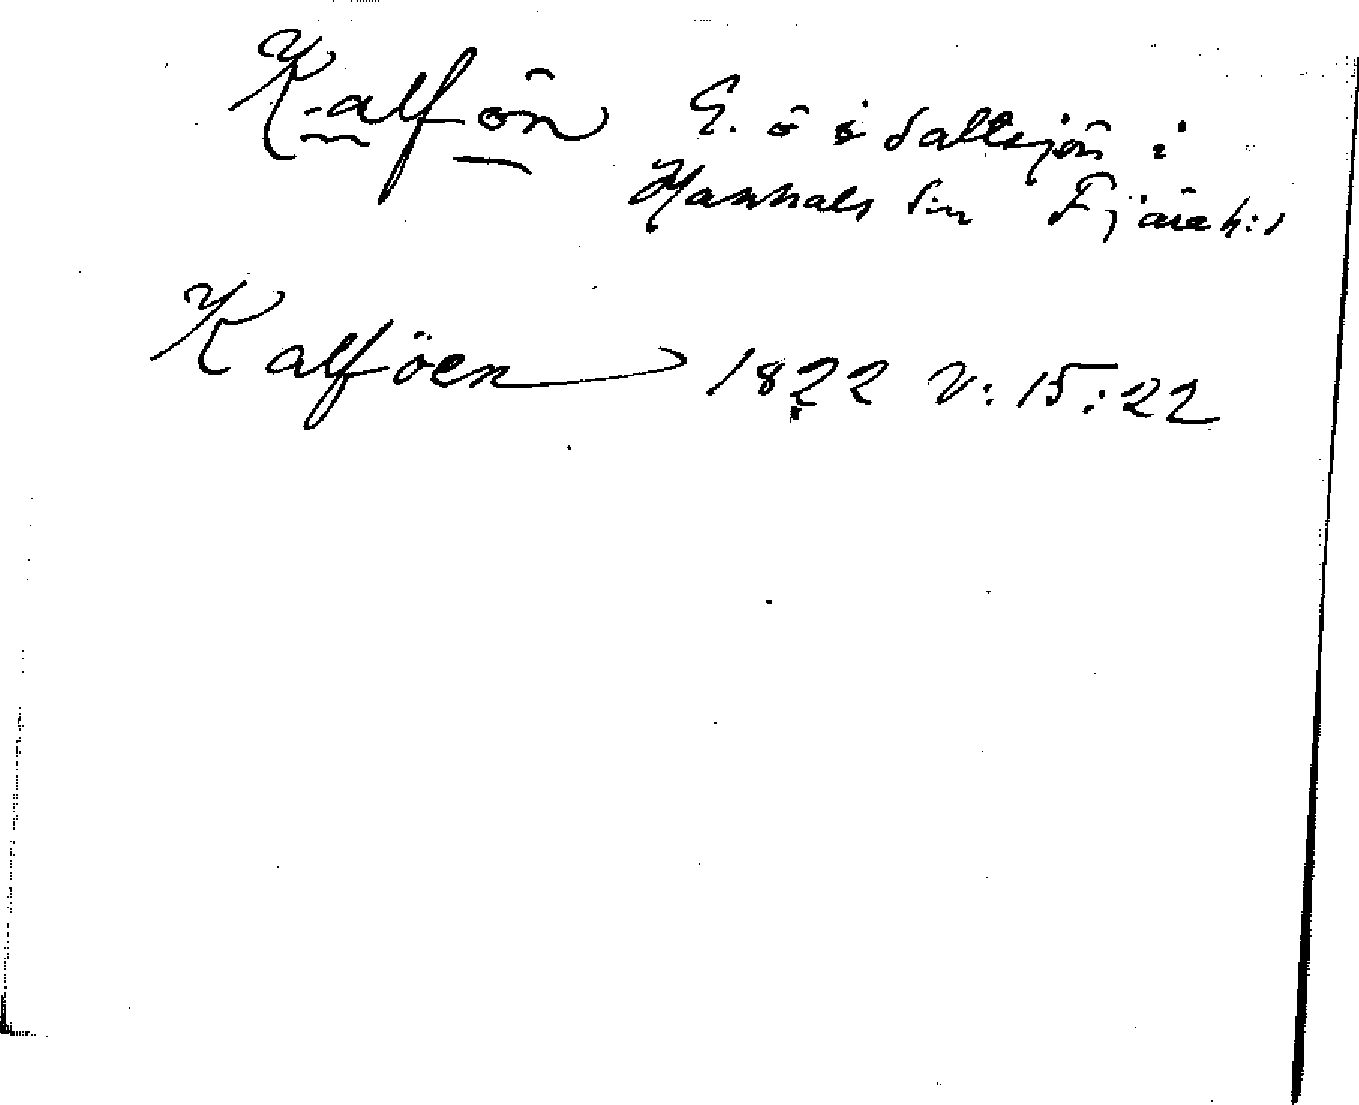 Kalfön E. ö i Saltsjön i
Hanhals sn Fjäre h:d
Kalföen 1822 V: 15:22